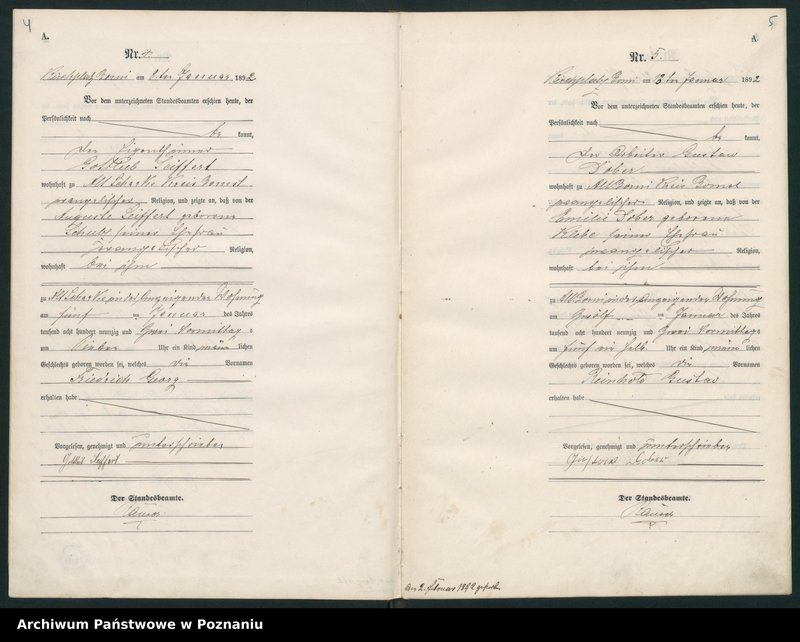 4
A.
Nr. 4.
Kirchplatz Borui am 8ten Januar 1892
Vor dem unterzeichneten Standesbeamten erschien heute, der
Persönlichkeit nach
be kannt,
der Eigenthümer
Gottlieb Seiffert
wohnhaft zu Kreis Bomst
evangelischer Religion, und zeigte an, daß von der
Auguste Seiffert geborene
Schulz seiner Ehefrau
evangelischer Religion,
wohnhaft bei ihm
zu in der Anzeigenden Wohnung
am fünf ten Januar des Jahres
tausend acht hundert neunzig und Zwei Vormittags
um sieben Uhr ein Kind männ lichen
Geschlechts geboren worden sei, welches die Vornamen
Friedrich Georg
erhalten habe
Vorgelesen, genehmigt und unterschrieben
Gottlieb Seiffert
Der Standesbeamte.
5
A
Nr. 5.
Kirchplatz Borui am 13ten Januar 1892
Vor dem unterzeichneten Standesbeamten erschien heute, der
Persönlichkeit nach
be kannt,
der Arbeiter Gustav
Dober
wohnhaft zu Alt Borui Kreis Bomst
evangelischer Religion, und zeigte an, daß von der
Emilie Dober geborene
Klebe seiner Ehefrau
evangelischer Religion,
wohnhaft bei ihm
zu Alt Borui in der Anzeigenden Wohnung
am Zwölf ten Januar des Jahres
tausend acht hundert neunzig und Zwei Vormittags
um fünf ein halb Uhr ein Kind männ lichen
Geschlechts geboren worden sei, welches die Vornamen
Reinhold Gustav
erhalten habe
Vorgelesen, genehmigt und unterschrieben
Gustav Dober
Der Standesbeamte.
Am 2. Februar 1892
Archiwum Państwowe w Poznaniu